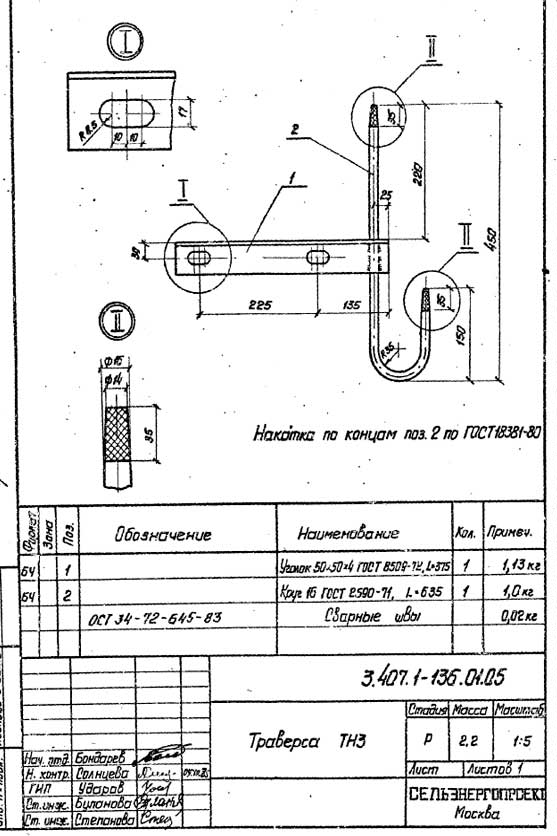 I
II
R 8,5
10 10
17
2
35
220
25
I
1
30
450
II
225
135
35
150
R35
II
Ф15
Ф14
35
Накатка по концам поз. 2 по ГОСТ 18381-80
Формат
Зона
Поз.
Обозначение
Наименование
Кол.
Примеч.
БЧ 1 Уголок 50×50×4 ГОСТ 8509-72, L=375 1 1,13 кг
БЧ 2 Круг 16 ГОСТ 2590-71, L=635 1 1,0 кг
ОСТ 34-72-645-83 Сварные швы 0,02 кг
3.407.1-136.01.05
Траверса ТН3
Стадия Масса Масштаб
Р 2,2 1:5
Лист Листов 1
Нач. отд. Бондарев
Н. контр. Солнцева
ГИП Ударов
Ст. инж. Буланова
Ст. инж. Степанова
СЕЛЬЭНЕРГОПРОЕКТ
Москва